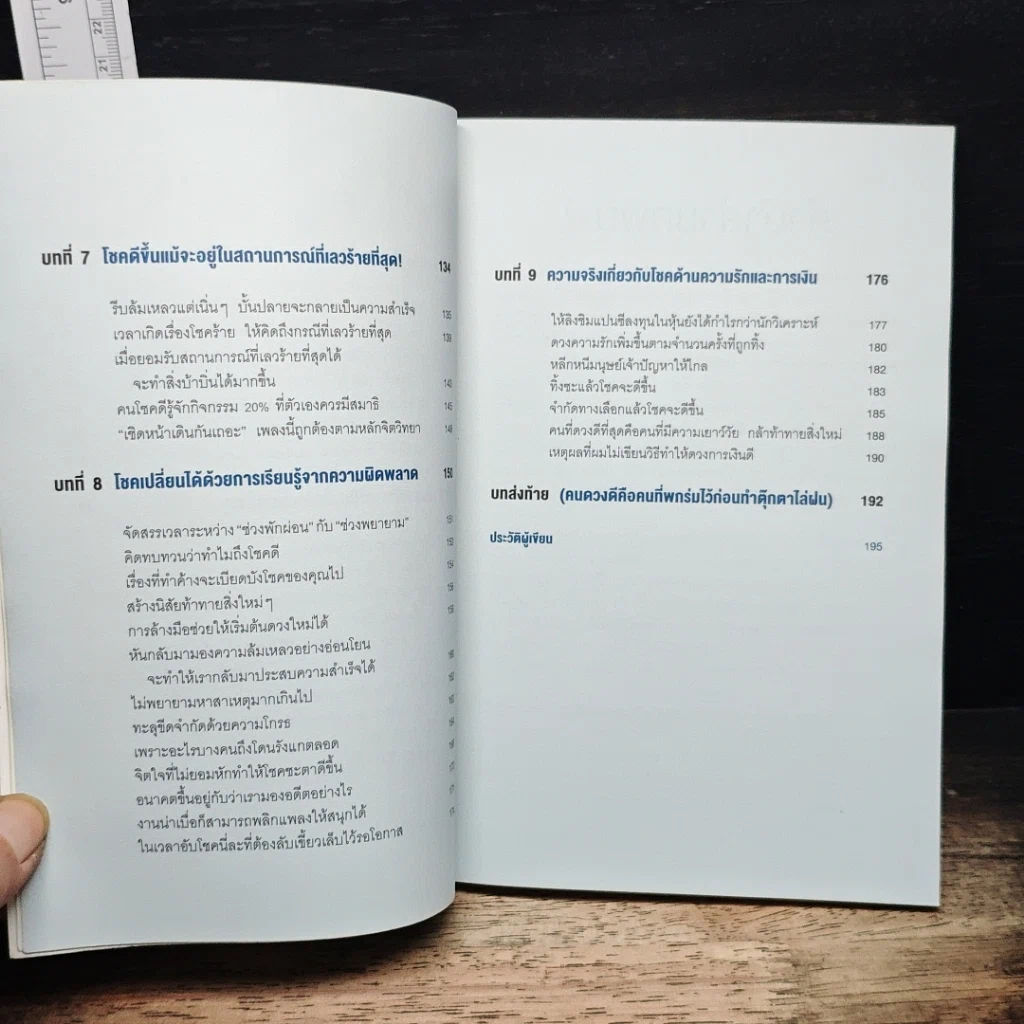 22
21
บทที่ 7 โชคดีขึ้นแม้จะอยู่ในสถานการณ์ที่เลวร้ายที่สุด! 134
รีบล้มเหลวแต่เนิ่นๆ บั้นปลายจะกลายเป็นความสำเร็จ 135
เวลาเกิดเรื่องโชคร้าย ให้คิดถึงกรณีที่เลวร้ายที่สุด 139
เมื่อยอมรับสถานการณ์ที่เลวร้ายที่สุดได้
จะทำสิ่งบ้าบิ่นได้มากขึ้น
คนโชคดีรู้จักกิจกรรม 20% ที่ตัวเองควรมีสมาธิ
“เชิดหน้าเดินกันเถอะ” เพลงนี้ถูกต้องตามหลักจิตวิทยา
บทที่ 8 โชคเปลี่ยนได้ด้วยการเรียนรู้จากความผิดพลาด 150
จัดสรรเวลาระหว่าง “ช่วงพักผ่อน” กับ “ช่วงพยายาม”
คิดทบทวนว่าทำไมถึงโชคดี
เรื่องที่ทำค้างจะเบียดบังโชคของคุณไป
สร้างนิสัยท้าทายสิ่งใหม่ๆ
การล้างมือช่วยให้เริ่มต้นดวงใหม่ได้
หันกลับมามองความล้มเหลวอย่างอ่อนโยน
จะทำให้เรากลับมาประสบความสำเร็จได้
ไม่พยายามหาสาเหตุมากเกินไป
ทะลุขีดจำกัดด้วยความโกรธ
เพราะอะไรบางคนถึงโดนรังแกตลอด
จิตใจที่ไม่ยอมหักทำให้โชคชะตาดีขึ้น
อนาคตขึ้นอยู่กับว่าเรามองอดีตอย่างไร
งานน่าเบื่อก็สามารถพลิกแพลงให้สนุกได้
ในเวลาอับโชคนี่ละที่ต้องลับเขี้ยวเล็บไว้รอโอกาส
บทที่ 9 ความจริงเกี่ยวกับโชคด้านความรักและการเงิน 176
ให้ลิงชิมแปนซีลงทุนในหุ้นยังได้กำไรกว่านักวิเคราะห์ 177
ดวงความรักเพิ่มขึ้นตามจำนวนครั้งที่ถูกทิ้ง 180
หลีกหนีมนุษย์เจ้าปัญหาให้ไกล 182
ทิ้งซะแล้วโชคจะดีขึ้น 183
จำกัดทางเลือกแล้วโชคจะดีขึ้น 185
คนที่ดวงดีที่สุดคือคนที่มีความเยาว์วัย กล้าท้าทายสิ่งใหม่ 188
เหตุผลที่ผมไม่เขียนวิธีทำให้ดวงการเงินดี 190
บทส่งท้าย (คนดวงดีคือคนที่พกร่มไว้ก่อนทำตุ๊กตาไล่ฝน) 192
ประวัติผู้เขียน 195